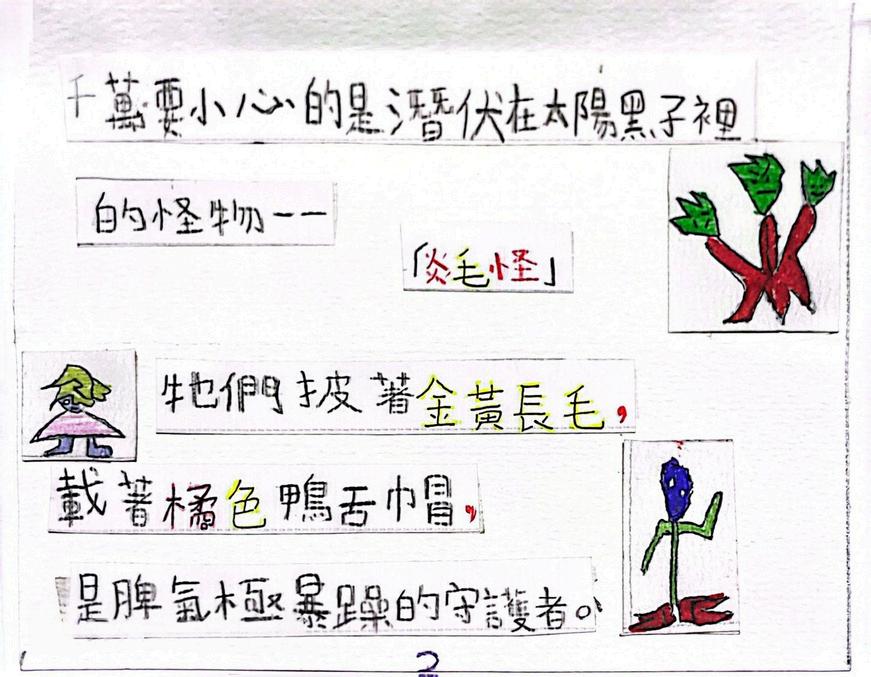 千萬要小心的是潛伏在太陽黑子裡
的怪物——
「炎毛怪」
牠們披著金黃長毛，
載著橘色鴨舌巾冒，
是脾氣極暴躁的守護者。
2